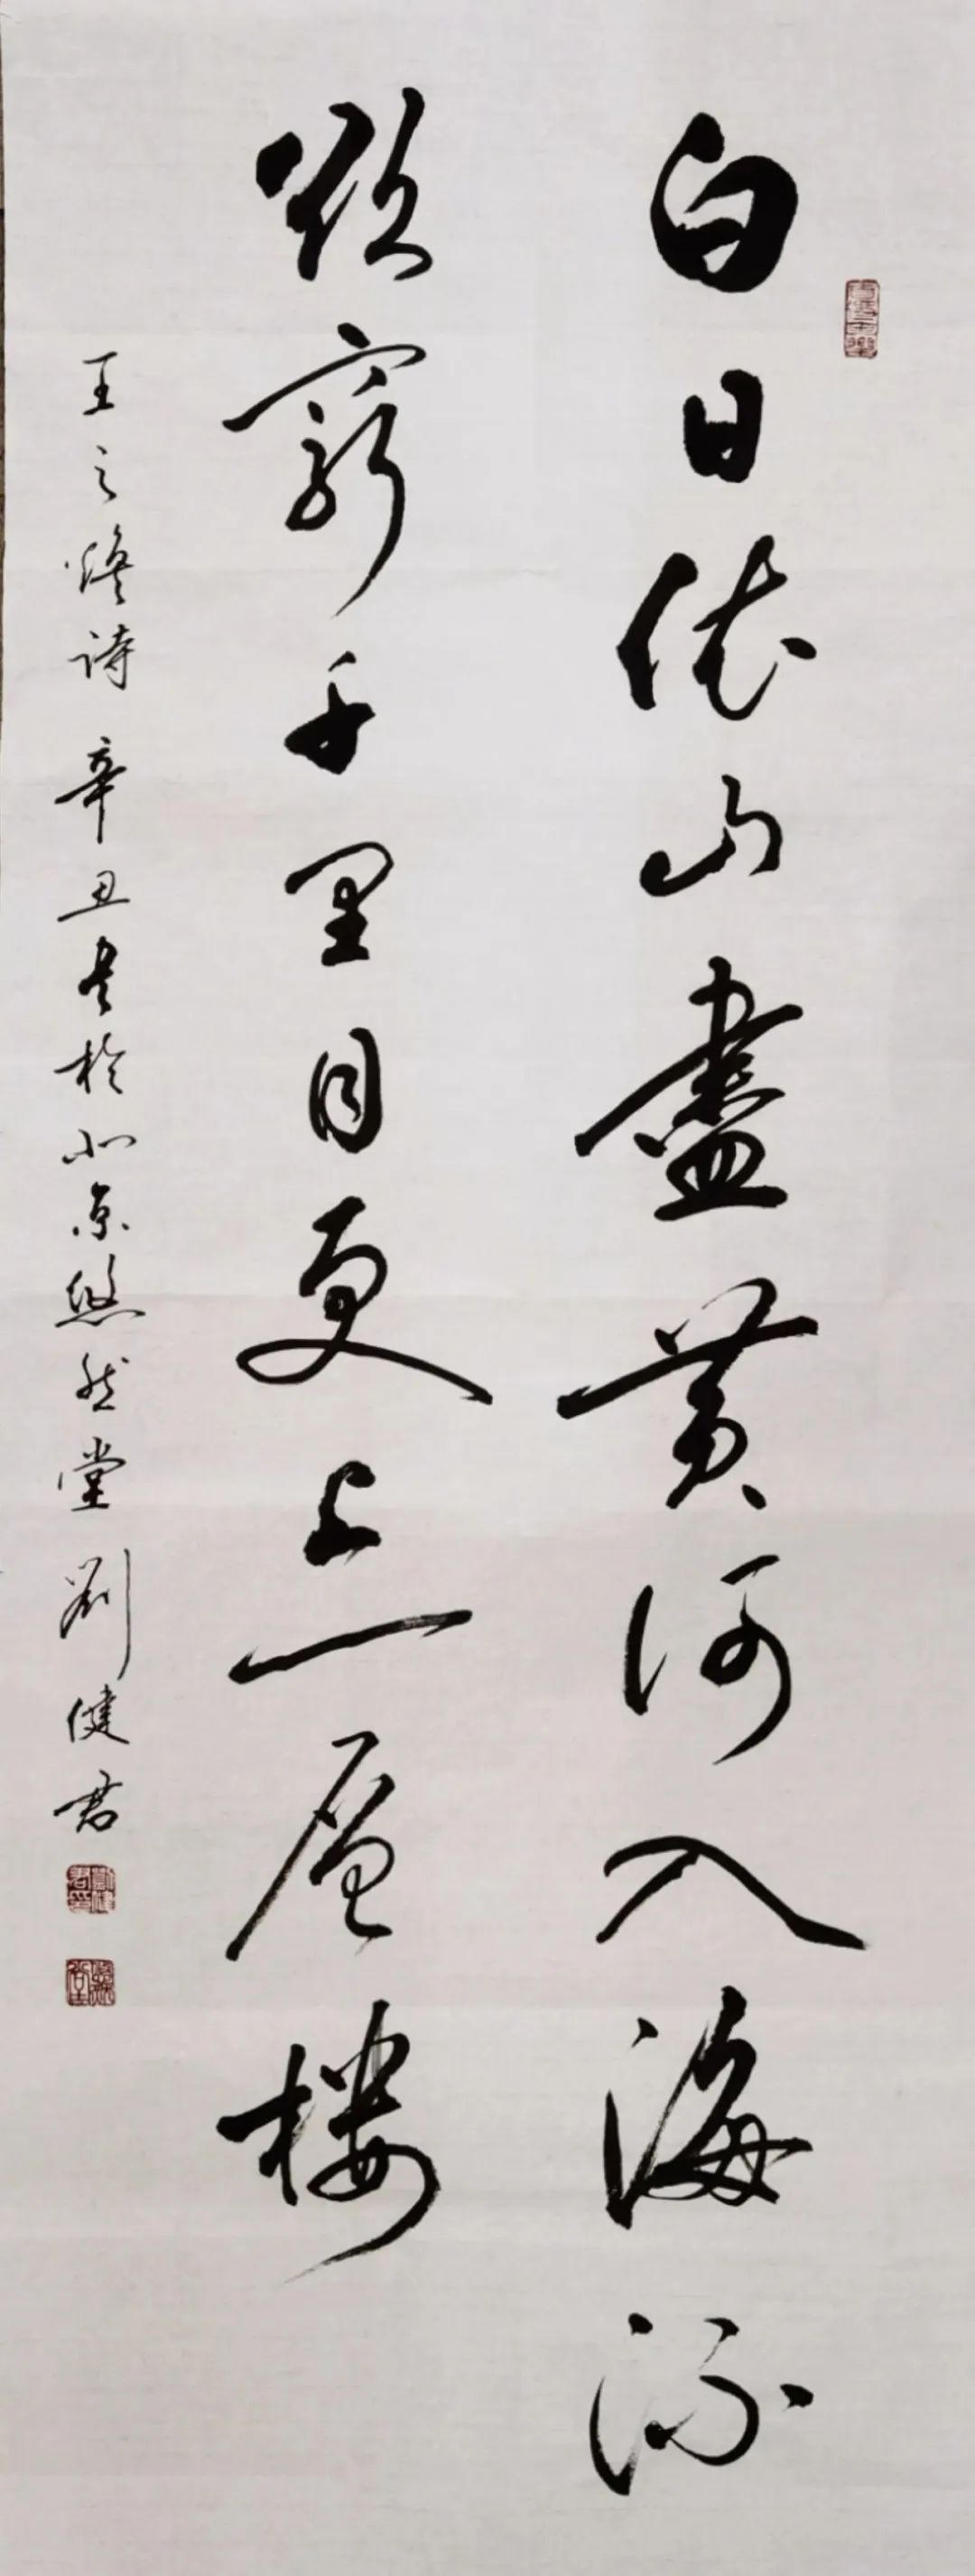 白日依山盡黄河入海流
欲窮千里目更上一層樓
王之煥诗 辛丑書於北京悠然堂劉健君